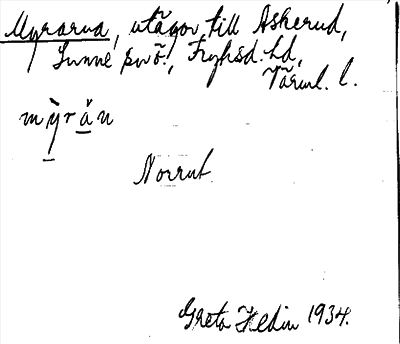 Myrarna, utägor till Askerud,
Sunne svö., Fryksd. hd,
Värml. l.
mỳrǎn
Norrut
Greta Hedin 1934.